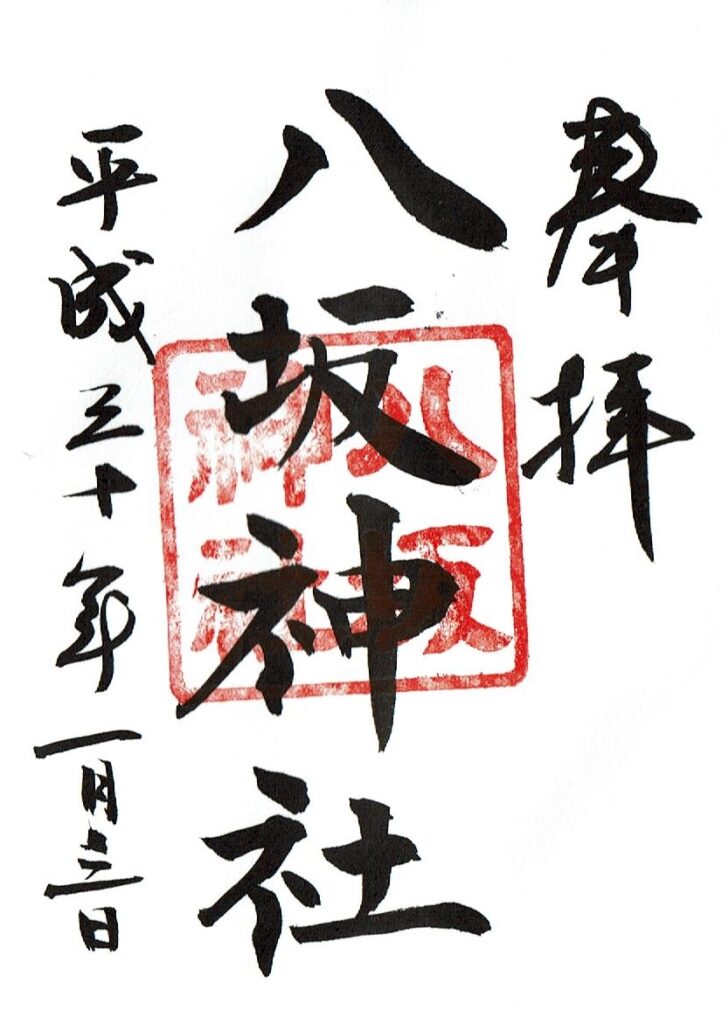 奉拝
八坂神社
八坂
神社
平成三十年一月三日